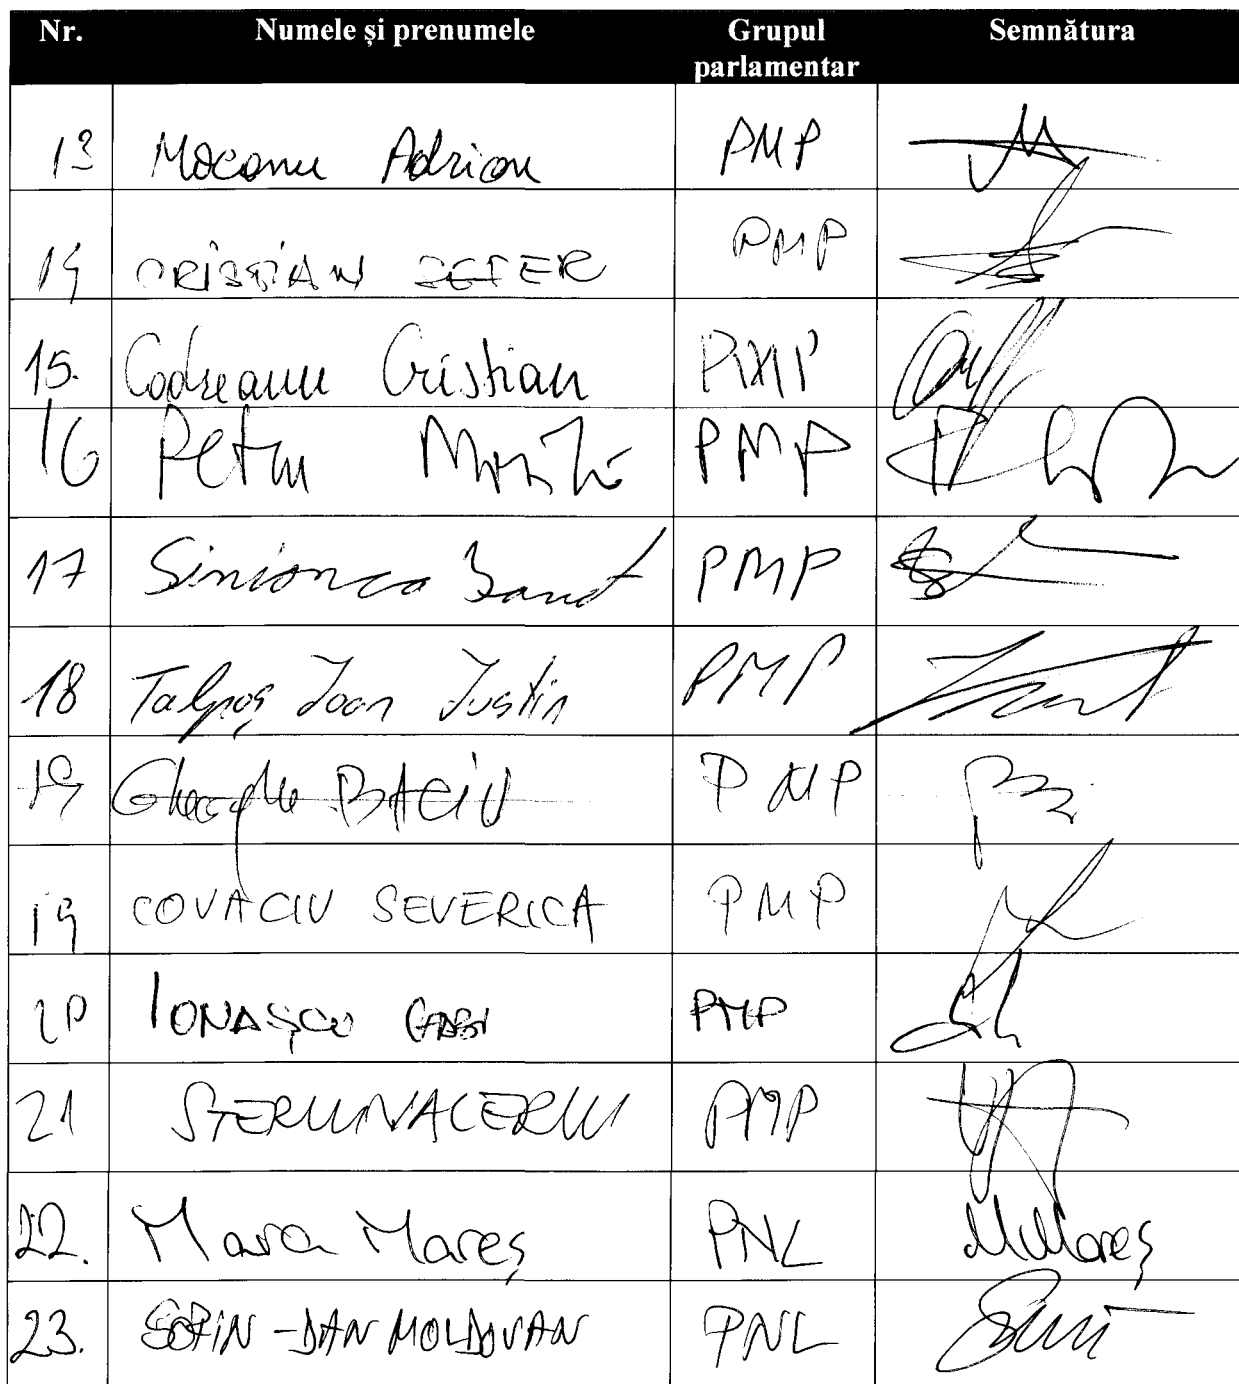 Nr. Numele și prenumele Grupul parlamentar Semnătura
13 Mocanu Adrian PMP
14 CRISTIAN SEFER PMP
15. Codreanu Cristian PMP
16 Petru PMP
17 Simionca Ionuț PMP
18 Talpoș Ioan Iustin PMP
19 Gheorghe BACIU PMP
19 COVACIU SEVERICA PMP
20 IONAȘCU GABI PMP
21 PMP
22. Mara Mareș PNL MMareș
23. SORIN-DAN MOLDOVAN PNL